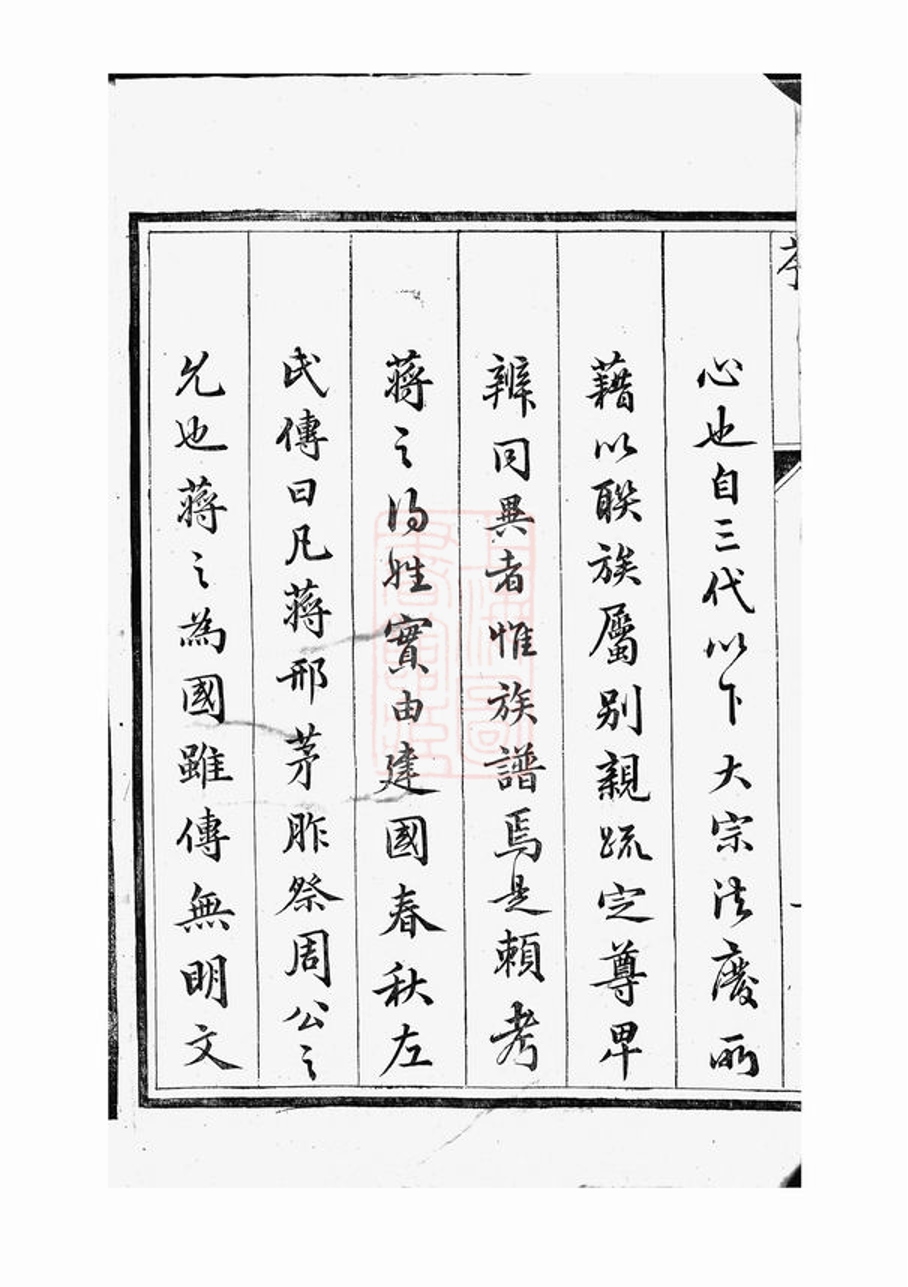 心也自三代以下大宗法廢所
藉以聯族屬别親疏定尊卑
辨同異者惟族譜焉是賴考
蔣之得姓實由建國春秋左
氏傳曰凡蔣邢茅胙祭周公之
允也蔣之為國雖傳無明文